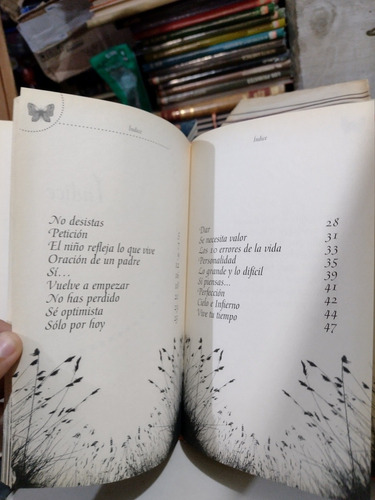 Índice
No desistas
Petición
El niño refleja lo que vive
Oración de un padre
Si...
Vuelve a empezar
No has perdido
Sé optimista
Sólo por hoy
Índice
Dar 28
Se necesita valor 31
Los 10 errores de la vida 33
Personalidad 35
Lo grande y lo difícil 39
Si piensas... 41
Perfección 42
Cielo e Infierno 44
Vive tu tiempo 47